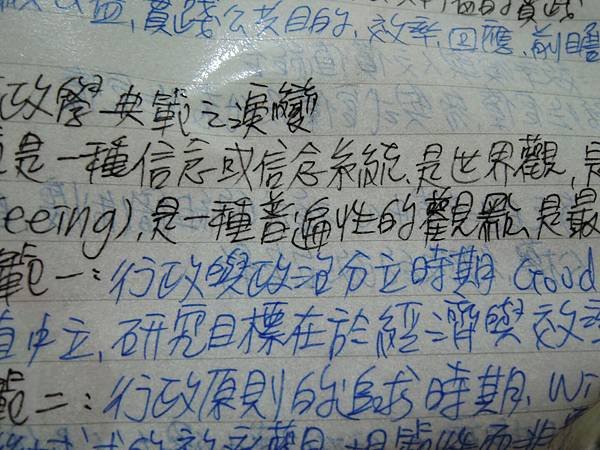 益,實踐公共目的,效率,回應,前瞻
政學典範之演變
是一種信念或信念系統,是世界觀,是
eeing),是一種普遍性的觀點,是最
範一:行政與政治分立時期 Good
值中立,研究目標在於經濟與效率
範二:行政原則的追求時期. Wi